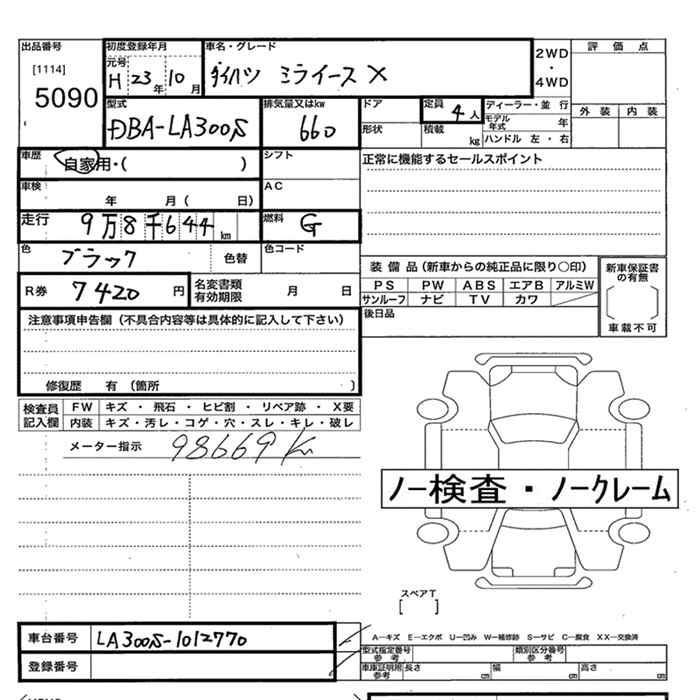 出品番号
[1114]
5090
初度登録年月
元号
H 23年 10月
車名・グレード
ダイハツ ミライース X
2WD
・
4WD
評価点
外装 内装
型式
DBA-LA300S
排気量又はkw
660
ドア
形状
定員
4人
積載
kg
ディーラー・並行
モデル年式 年
ハンドル 左・右
車歴
自家用・( )
シフト
正常に機能するセールスポイント
車検
年 月( 日)
AC
走行
9万8千644km
燃料
G
色
ブラック
色替
色コード
R券 7420円
名変書類
有効期限
月 日
装備品(新車からの純正品に限り○印)
PS PW ABS エアB アルミW
サンルーフ ナビ TV カワ
新車保証書
の有無
[ ]
車載不可
後日品
注意事項申告欄(不具合内容等は具体的に記入して下さい)
修復歴 有(箇所 )
検査員
記入欄
FW キズ・飛石・ヒビ割・リペア跡・X要
内装 キズ・汚レ・コゲ・穴・スレ・キレ・破レ
メーター指示 98669 K
ノー検査・ノークレーム
スペアT
[ ]
車台番号 LA300S-1012770
登録番号
A―キズ E―エクボ U―凹み W―補修跡 S―サビ C―腐食 XX―交換済
型式指定番号
参考
類別区分番号
参考
車庫証明用
参考
長さ cm
幅 cm
高さ cm